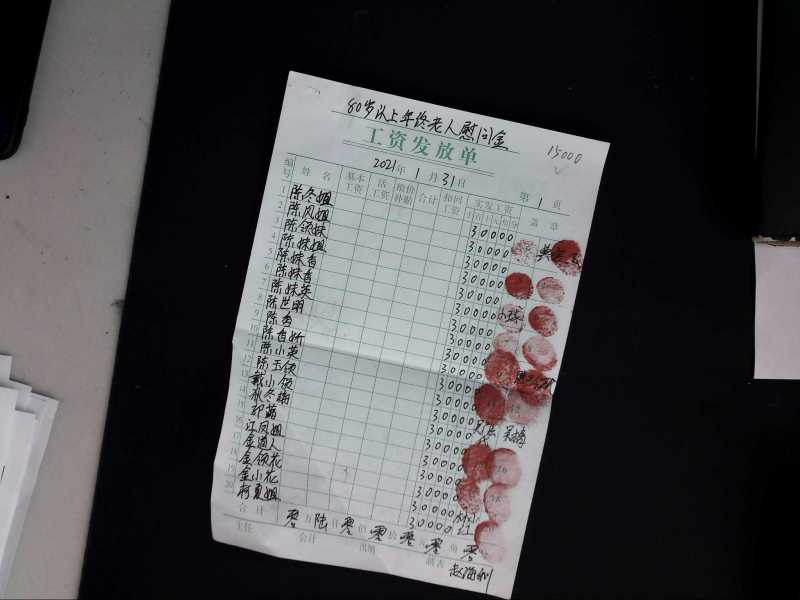 80岁以上年终老人慰问金
15000
工资发放单
2021年1月31日 第1页
编号 姓名 基本工资 活工资 物价补贴 合计 扣回工资 实发工资 盖章
1 陈冬姐 30000
2 陈凤姐 30000
3 陈领妹 30000
4 陈妹姐 30000
5 陈妹香 30000
6 陈妹香 30000
7 陈妹英 30000
8 陈世明 30000
9 陈香 30000
10 陈香娇 30000
11 陈小英 30000
12 陈玉领 30000
13 戴小领 30000
14 冬 30000
15 30000
16 江凤姐 30000
17 金 人 30000
18 金领花 30000
19 金小花 30000
20 柯夏姐 30000
合计 零万陆仟零佰零拾零元零角零
主任 会计 出纳 制表